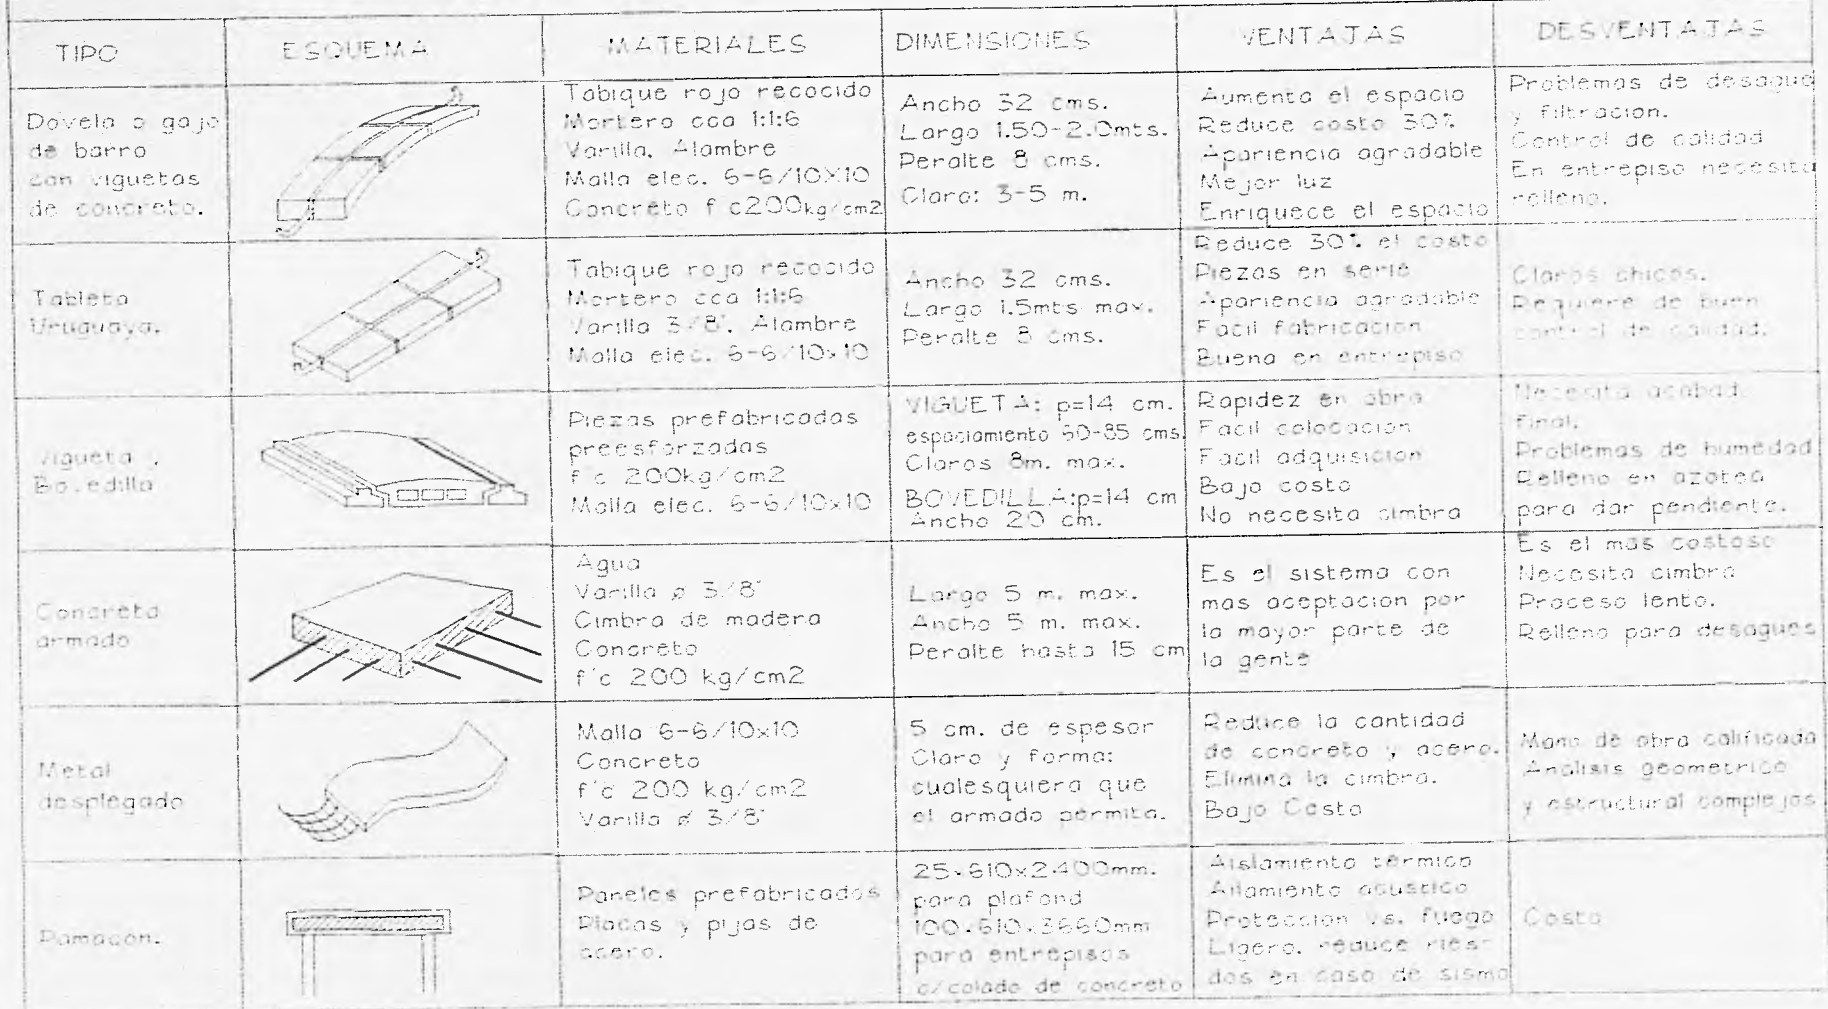 TIPO
ESQUEMA
MATERIALES
DIMENSIONES
VENTAJAS
DESVENTAJAS
Dovela o gajo
de barro
con viguetas
de concreto.
Tabique rojo recocido
Mortero cca 1:1:6
Varilla. Alambre
Malla elec. 6-6/10X10
Concreto f c200kg/cm2
Ancho 32 cms.
Largo 1.50-2.0mts.
Peralte 8 cms.
Claro: 3-5 m.
Aumenta el espacio
Reduce costo 30%
Apariencia agradable
Mejor luz
Enriquece el espacio
Problemas de desague
y filtracion.
Control de calidad
En entrepiso necesita
relleno.
Tableta
Uruguaya.
Tabique rojo recocido
Mortero cca 1:1:6
Varilla 3/8". Alambre
Malla elec. 6-6/10x10
Ancho 32 cms.
Largo 1.5mts max.
Peralte 8 cms.
Reduce 30% el costo
Piezas en serie
Apariencia agradable
Facil fabricacion
Buena en entrepiso
Claros chicos.
Requiere de buen
control de calidad.
Vigueta y
Bovedilla
Piezas prefabricadas
preesforzadas
f'c 200kg/cm2
Malla elec. 6-6/10x10
VIGUETA: p=14 cm.
espaciamiento 60-85 cms.
Claros 8m. max.
BOVEDILLA:p=14 cm
Ancho 20 cm.
Rapidez en obra
Facil colocacion
Facil adquisicion
Bajo costo
No necesita cimbra
Necesita acabado
final.
Problemas de humedad
Relleno en azotea
para dar pendiente.
Concreto
armado
Agua
Varilla ø 3/8"
Cimbra de madera
Concreto
f'c 200 kg/cm2
Largo 5 m. max.
Ancho 5 m. max.
Peralte hasta 15 cm
Es el sistema con
mas aceptacion por
la mayor parte de
la gente
Es el mas costoso
Necesita cimbra
Proceso lento.
Relleno para desagues
Metal
desplegado
Malla 6-6/10x10
Concreto
f'c 200 kg/cm2
Varilla ø 3/8"
5 cm. de espesor
Claro y forma:
cualesquiera que
el armado permita.
Reduce la cantidad
de concreto y acero.
Elimina la cimbra.
Bajo Costo
Mano de obra calificada
Analisis geometrico
y estructural complejos
Pamacon.
Paneles prefabricados
Placas y pijas de
acero.
25x610x2400mm.
para plafond
100x610x3660mm
para entrepisos
c/colado de concreto
Aislamiento termico
Ailamiento acustico
Proteccion vs. fuego
Ligero. reduce ries-
dos en caso de sismo
Costo